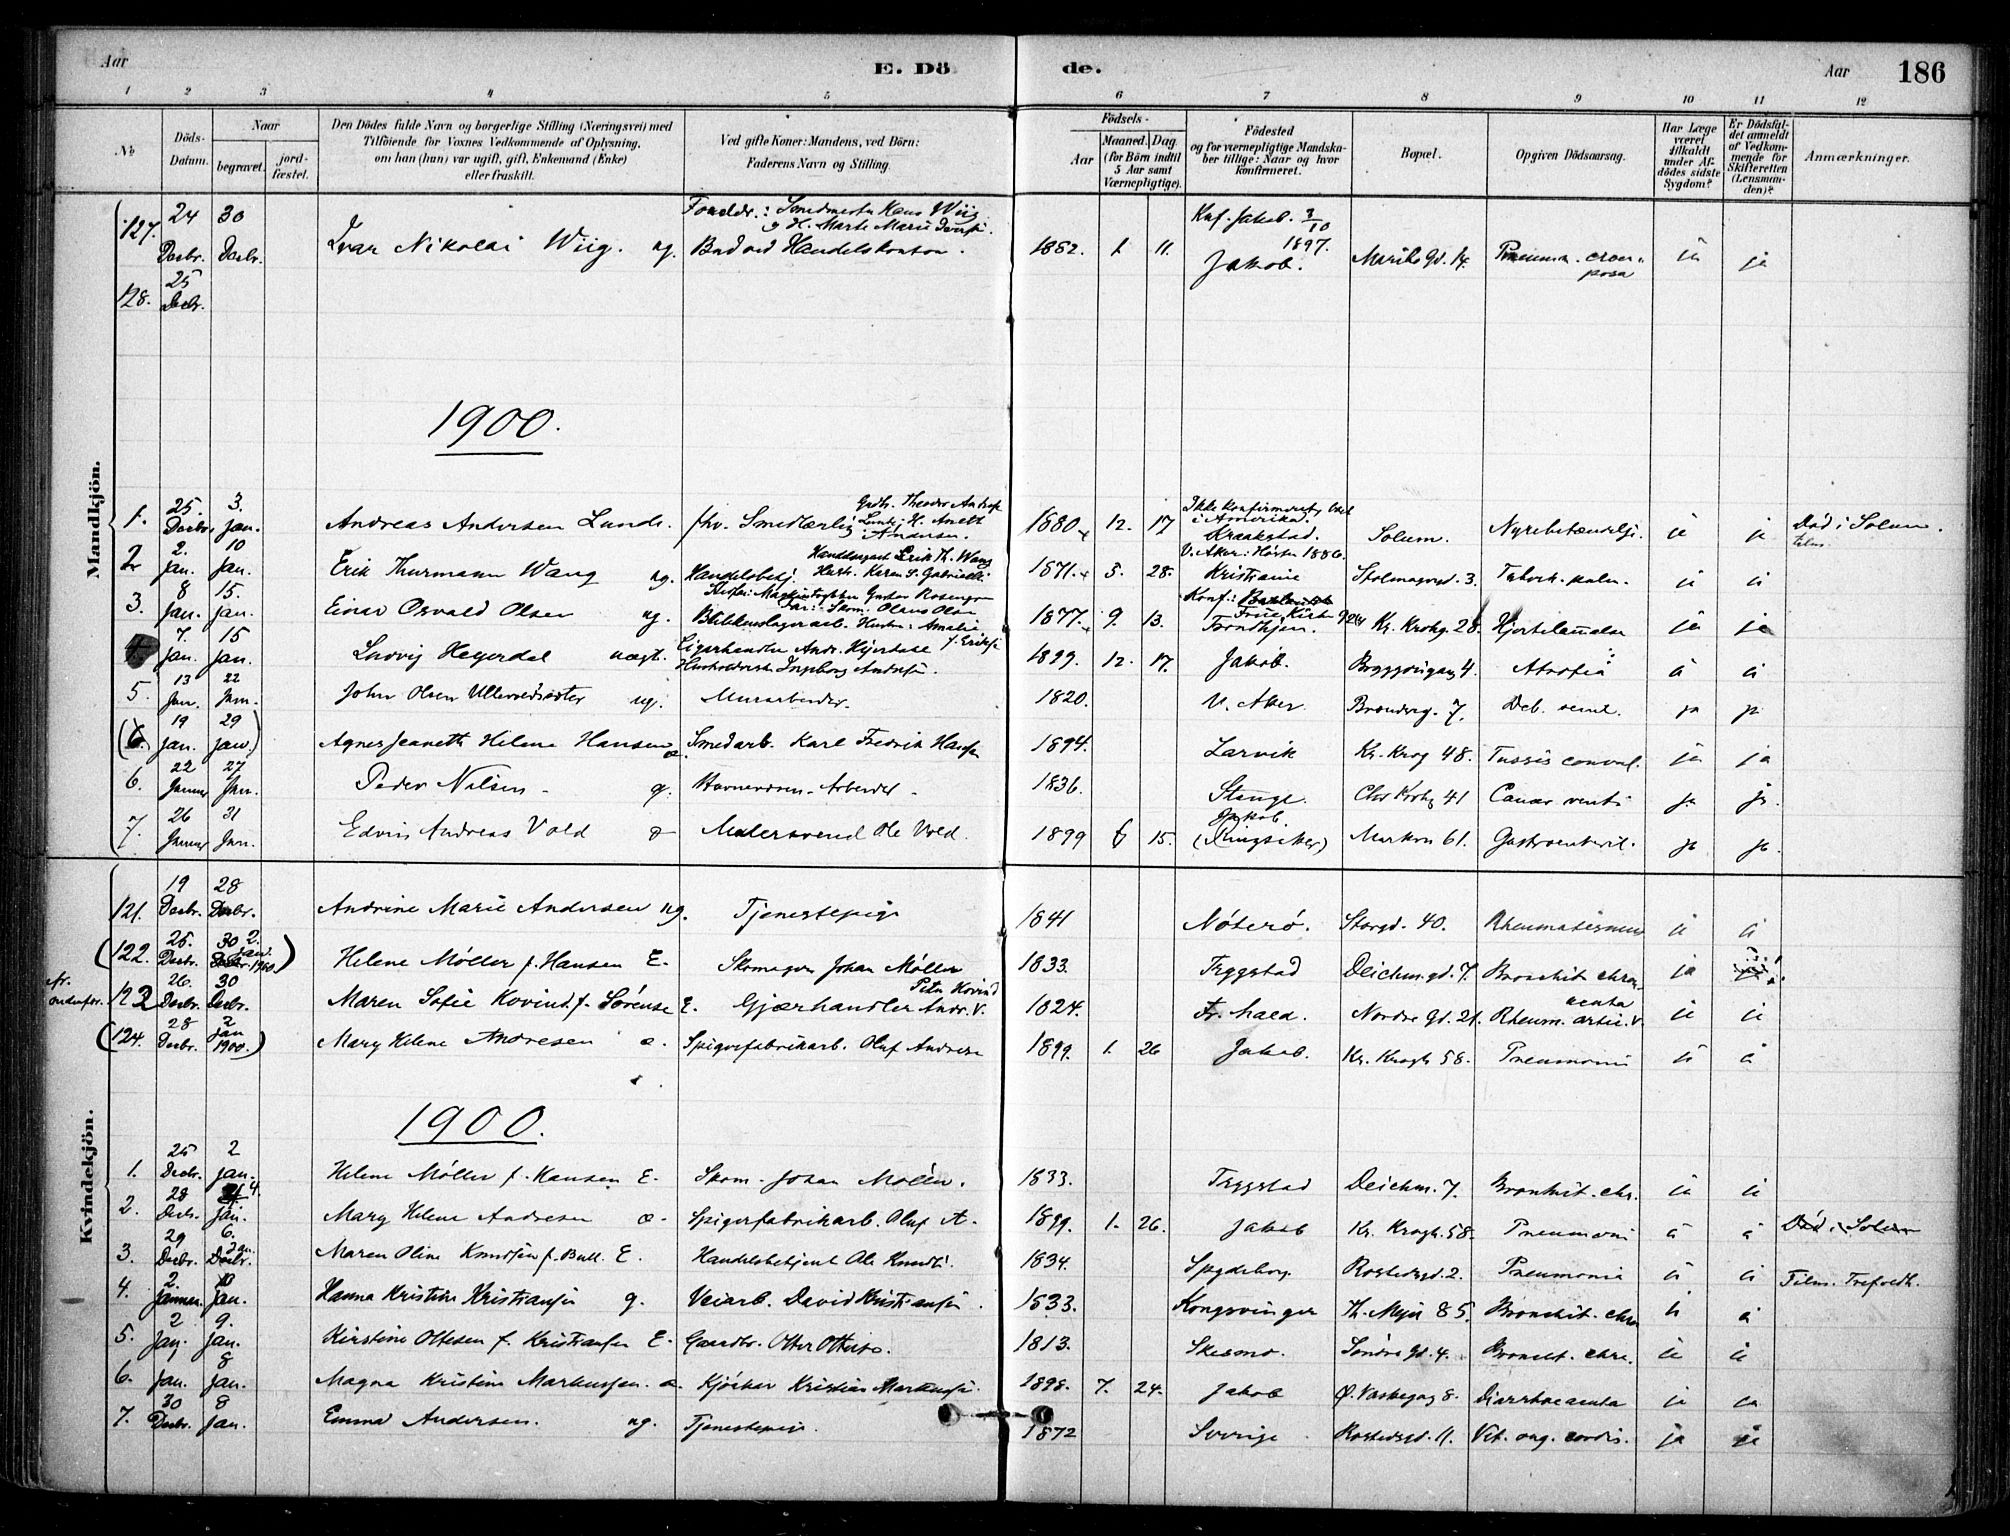 Aar E. Dö de. Aar 186
1 2 3 4 5 6 7 8 9 10 11 12
No Döds-Datum. Naar begravet. jord-fæstet.
Den Dödes fulde Navn og borgerlige Stilling (Næringsvei) med Tilföiende for Voxnes Vedkommende af Oplysning, om han (hun) var ugift, gift, Enkemand (Enke) eller fraskilt.
Ved gifte Koner: Mandens, ved Börn: Faderens Navn og Stilling.
Födsels- Aar Maaned. Dag (for Börn indtil 5 Aar samt Værnepligtige).
Födested og for værnepligtige Mandskaber tillige: Naar og hvor konfirmeret.
Bopæl.
Opgiven Dödsaarsag.
Har Læge været tilkaldt under Afdödes sidste Sygdom?
Er Dödsfaldet anmeldt af Vedkommende for Skifteretten (Lensmanden)?
Anmærkninger.
Mandkjön.
127. 24 Decbr. 30 Decbr. Ivar Nikolai Wiig. ug. Forældr.: Smedmester Hans Wiig og H. Marte Marie Bud ved Handelskontor. 1882. 1 11. Knf. Jakob. 3/10 1897. Jakob. Marib. Gd. 14. Pneumon. crouposa ja ja
128. 25 Decbr.
1900.
1. 25. Decbr. 3. Jan. Andreas Andersen Lund. fhv. Smedlærling Andersen. 1880 12. 17 Ikke Konfirmeret i Amerika. Kraakstad. Solum. Nyrebetændelse ja ja Död i Solum.
2. 2. Jan. 10 Jan. Erik Thurmann Wang ug. Handelsbetj. Erik Th. Wang 1871. 3. 28. V. Aker: Hösten 1886. Kristiania Stolmagergd. 3. Tuberk. pulm. ja ja
3. 8 Jan. 15. Jan. Einar Osvald Olsen ug. Blikkenslagerarb. 1877. 9. 13. Trondhjem. Kr. Krohg. 28. Hjertelammelse ja ja
4. 7. Jan. 15 Jan. Ludvig Heyerdal uægt. Cigarhandler Andr. 1899. 12. 17. Jakob. Byggningang 4. Atrofia ja ja
5. 13 Jan. 22 Jan. John Olsen Ullevoldsæter ug. Murarbeider. 1820. V. Aker Brændvg. 7. Deb. senil. ja ja
(6. 19 Jan. 29 Jan.) Agnes Jeanette Helene Hansen æ. Smedarb. Karl Fredrik Hansen 1894. Larvik Kr. Krog 48. Tussis conval. ja ja
6. 22 Januar 27 Jan. Peder Nilsen g. Havnevæsen-Arbeider 1836. Stange. Chr. Krohg 41 Cancer ventr. ja ja
7. 26 Januar 31 Jan. Edvin Andreas Vold æ Malersvend Ole Vold. 1899 6 15. Jakob. (Ringsaker) Markvn 61. Gastroenterit. ja ja
Kvindekjön.
121. 19 Decbr. 28 Decbr. Andrine Marie Andersen ug. Tjenestepige 1841 Nöterö. Storgd. 40. Rheumatismus ja ja
(122. 25. Decbr. 30 2. Jan. 1900.) Helene Møller f. Hansen E. Skomager Johan Møller 1833. Trygstad Deichm. gd. 7. Bronchit chron. ja
123 26. Decbr. 30 Decbr. Maren Sofie Kovind f. Sørense E. Gjærhandler Andr. V. Peter Kovind 1824. Fr. hald. Nordre Gd. 21. Rheum. artic. acuta ja ja
(124. 28 Decbr. 2 Jan 1900.) Mary Helene Andresen æ. Spigerfabrikarb. Oluf Andresen 1899. 1. 26 Jakob. Kr. Krogh 58. Pneumonia ja ja
1900.
1. 25 Decbr. 2 Jan. Helene Møller f. Hansen E. Skom. Johan Møller. 1833. Trygstad Deichm. 7. Bronkit. chr. ja ja
2. 28 Decbr. 4. Jan. Mary Helene Andresen æ. Spigerfabrikarb. Oluf A. 1899. 1. 26. Jakob Kr. Krogh. 58. Pneumoni ja ja Död i Solum
3. 29 Decbr. 6. Jan. Maren Oline Knudsen f. Bull. E. Handelsbetjent Ole Knudse. 1834. Spydeberg. Rostedsgd. 2. Pneumonia ja ja
4. 2. Januar. 10 Jan. Hanna Kristine Kristiansen g. Veiarb. David Kristiansen. 1833. Kongsvinger Th. Meyer 85. Bronchit. chro ja ja Tilm. Trefoldh.
5. 2 Jan. 9. Jan. Kirstine Ottesen f. Kristiansen E. Gaardbr. Otter Ottesen. 1813. Skesmo. Söndre gd. 4. Bronchit. chro. ja ja
6. Jan. 8 Jan. Magna Kristine Markussen. æ. Kjörer Kristian Markussen. 1898. 7. 24. Jakob Ø. Vaskegang 8. Diarrhoe acuta ja ja
7. 30 Decbr. 8 Jan. Emma Andersen. ug. Tjenestepige. 1872 Sverige. Rostedsgd. 11. Vit. org. cordis. ja ja